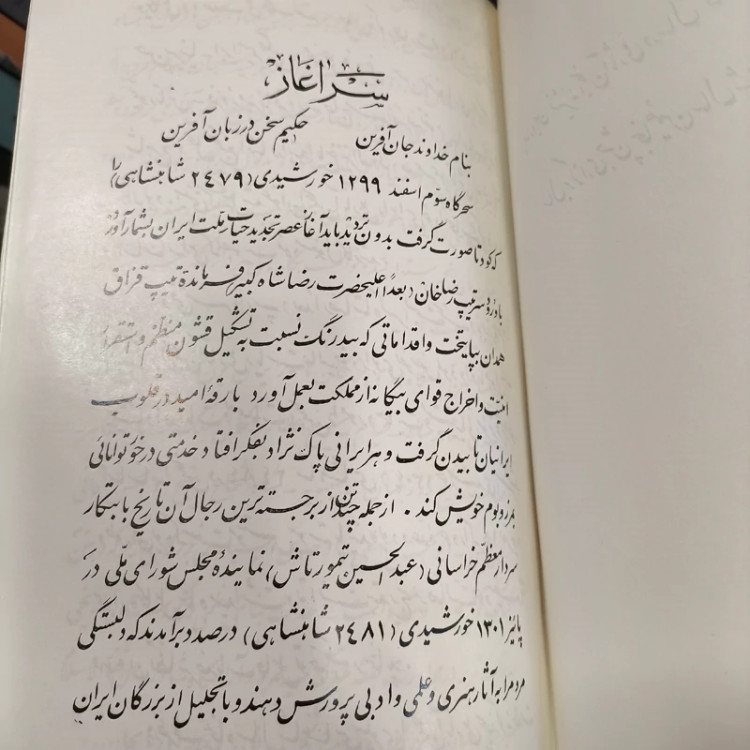 سرآغاز
بنام خداوند جان آفرین حکیم سخن در زبان آفرین
سحرگاه سوّم اسفند ۱۲۹۹ خورشیدی (۲۴۷۹ شاهنشاهی) را
که کودتا صورت گرفت بدون تردید باید آغاز عصر تجدید حیات ملّت ایران بشمار آورد
با ورود سرتیپ رضاخان (بعداً اعلیحضرت رضا شاه کبیر) فرماندهٔ تیپ قزاق
همدان بپایتخت و اقداماتی که بیدرنگ نسبت به تشکیل قشون منظم و استقرار
امنیت و اخراج قوای بیگانه از مملکت بعمل آورد بارقهٔ امید در قلوب
ایرانیان تابیدن گرفت و هر ایرانی پاک نژاد بفکر افتاد خدمتی درخور توانائی
بمرز و بوم خویش کند . از جمله چند تن از برجسته ترین رجال آن تاریخ با بتکار
سردار معظم خراسانی (عبدالحسین تیمورتاش) نمایندهٔ مجلس شورای ملّی در
پائیز ۱۳۰۱ خورشیدی (۲۴۸۱ شاهنشاهی) درصدد برآمدند که دلبستگی
مردم را به آثار هنری و علمی و ادبی پرورش دهند و با تجلیل از بزرگان ایران